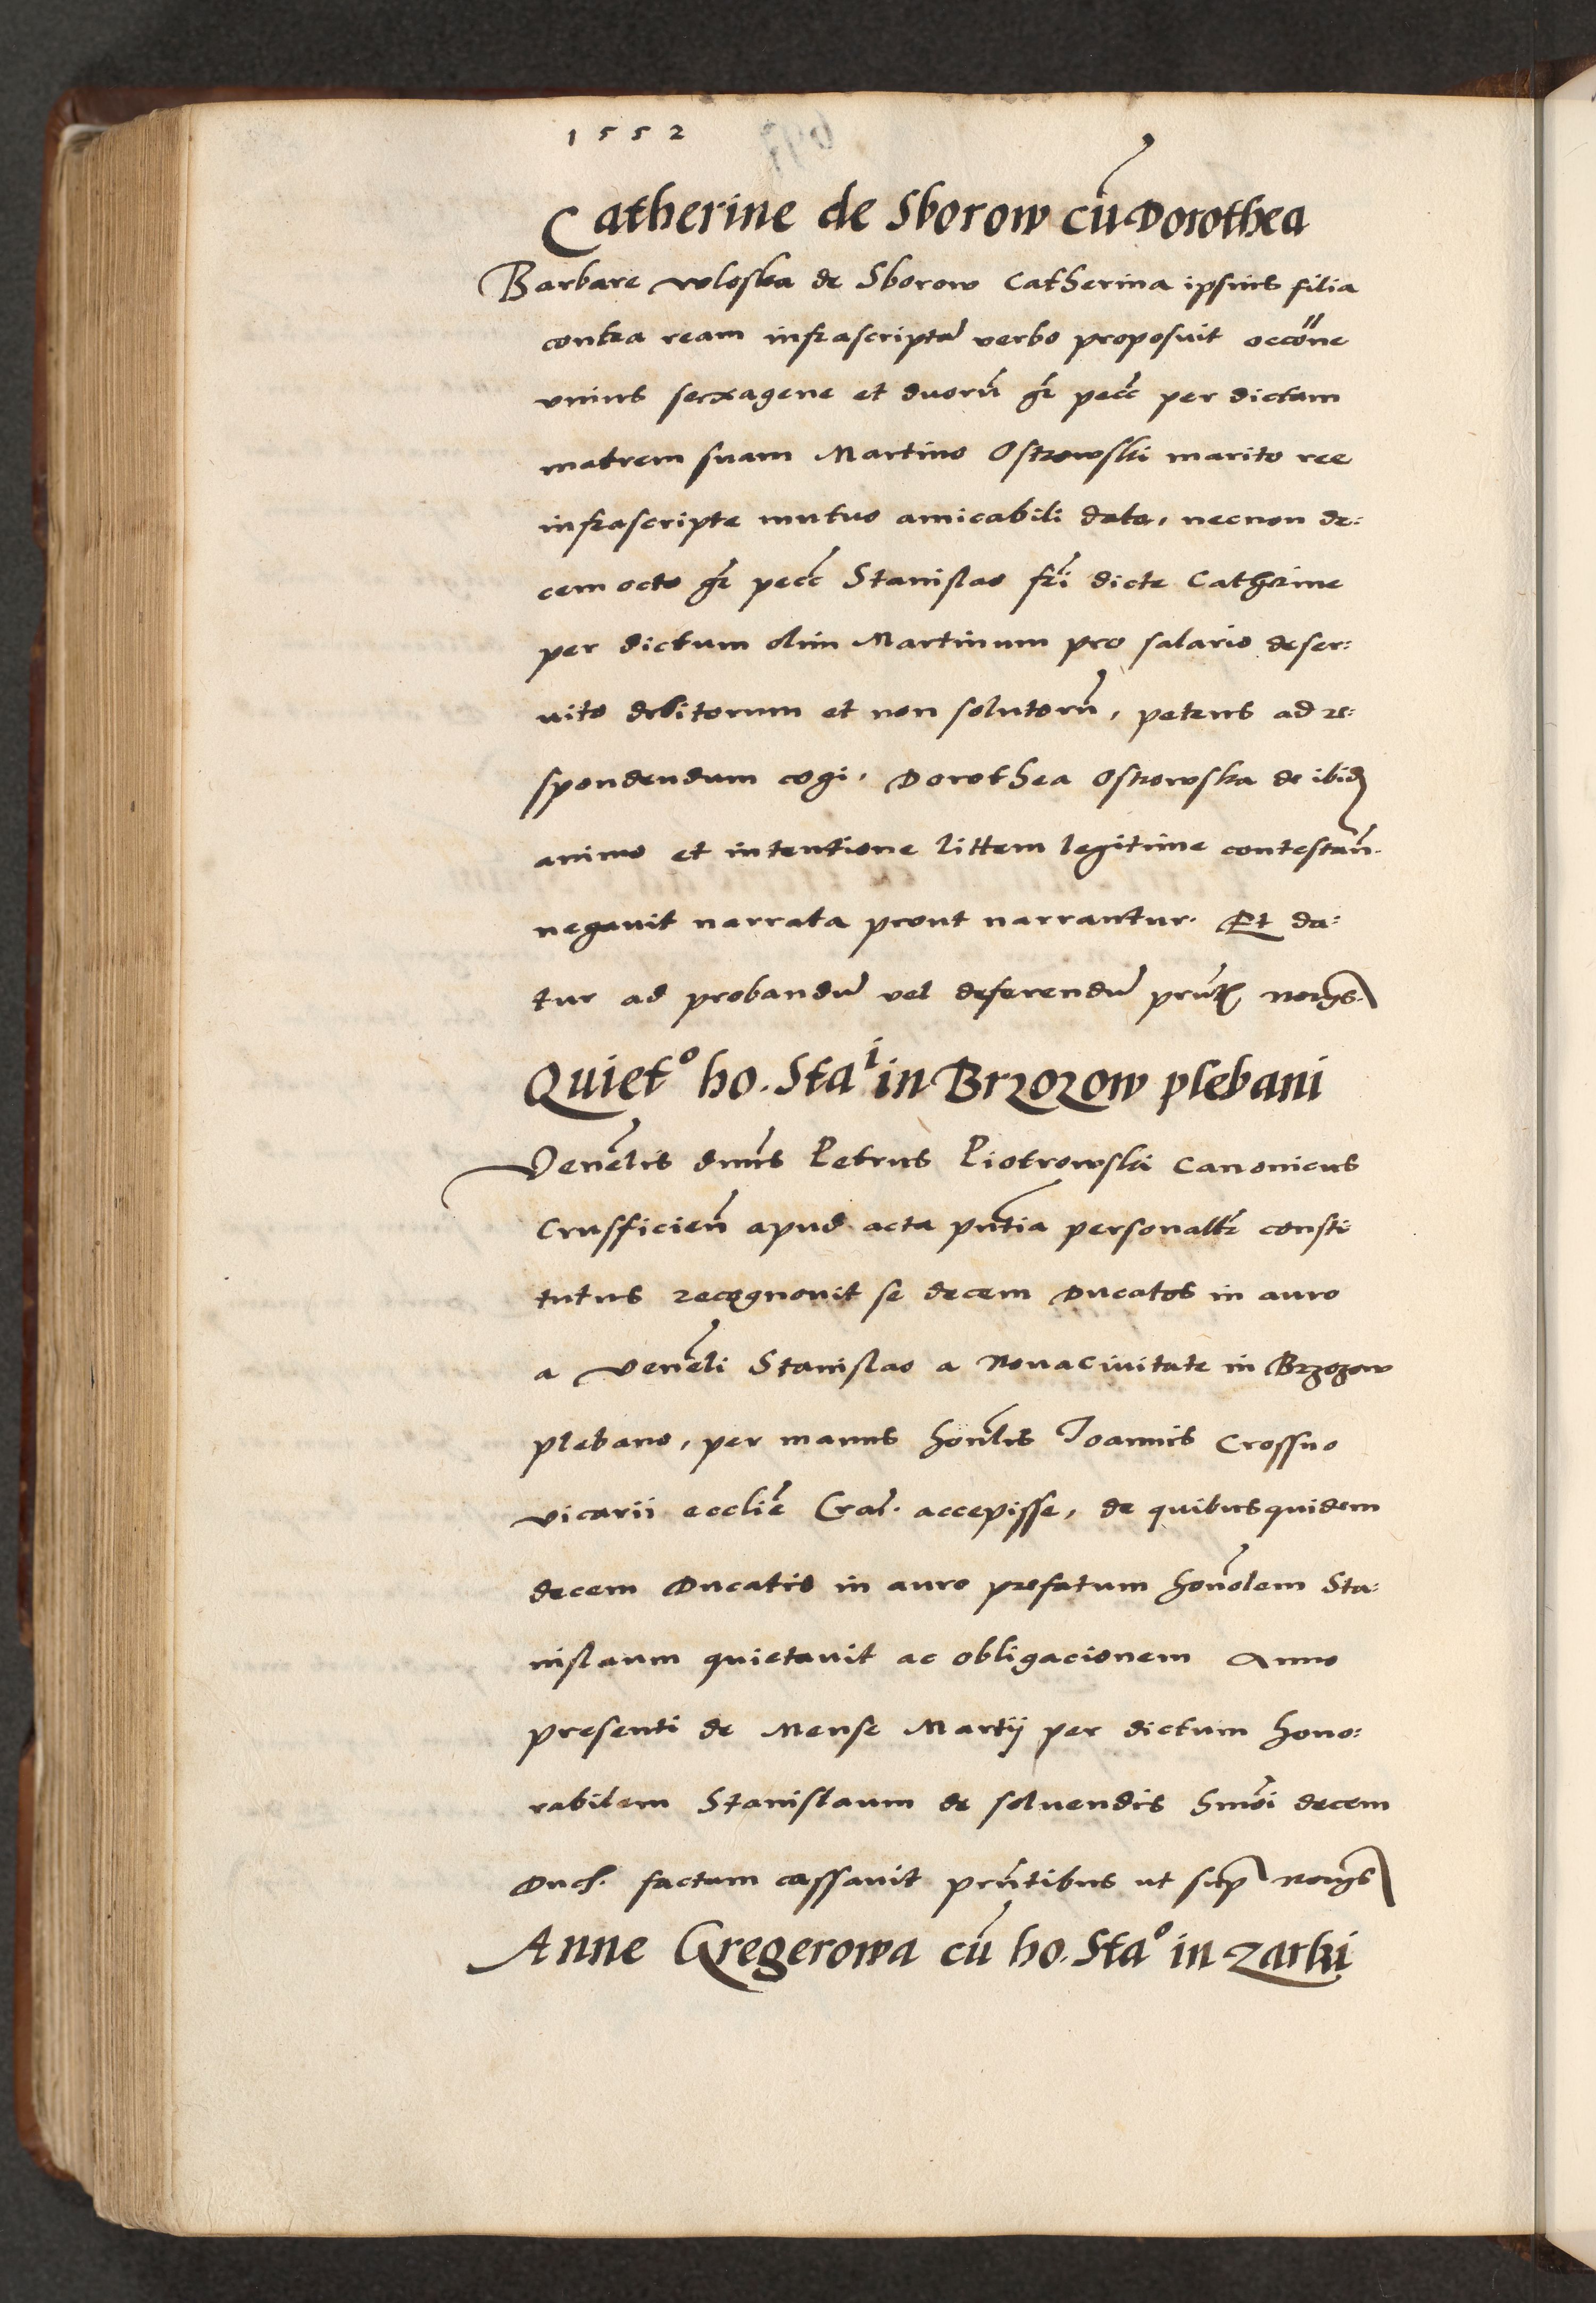 1552
Catherine de Sborow cu̅ Dorothea
Barbare woloska de Sborow Catherina ipsius filia
contra ream infrascripta̅ verbo proposuit occo̅ne
unius sexagene et duoru̅ gr̅ pecc̅ per dictam
matrem suam Martino Ostrowski marito ree
infrascripte mutuo amicabili data, necnon de:
cem octo gr̅ pecc̅ Stanislao fr̅i dicte Catherine
per dictum olim Martinum pro salario deser:
uito debitorum et non solutoru̅, petens ad re:
spondendum cogi. Dorothea Ostrowska de ibid
animo et intentione littem legitime contestan̅.
negavit narrata prout narrantur. Et da:
tur ad probandu̅ vel deferendu̅
Quiet° ho. Staⁱ in Brzozow plebani
Vene̅lis dnn̅s Petrus Piotrowski Canonicus
Crusficien̅ apud acta pn̅tia personalr̅ consti
tutus recognouit se decem Ducatos in auro
a Vene̅li Stanislao a Nova Civitate in Brzozow
plebano, per manus hon̅lis Joannis Crossno
vicarii eccli̅e Cra̅c. accepisse, de quibus quidem
decem Ducatis in auro prefatum hono̅lem Sta:
nislaum quietavit ac obligacionem Anno
presenti de Mense Martij per dictum hono:
rabilem Stanislaum de solvendis hmo̅i decem
Duc. factum cassavit prn̅tibus ut sup
Anne Gregerowa cu̅ ho. Sta° in Zarki